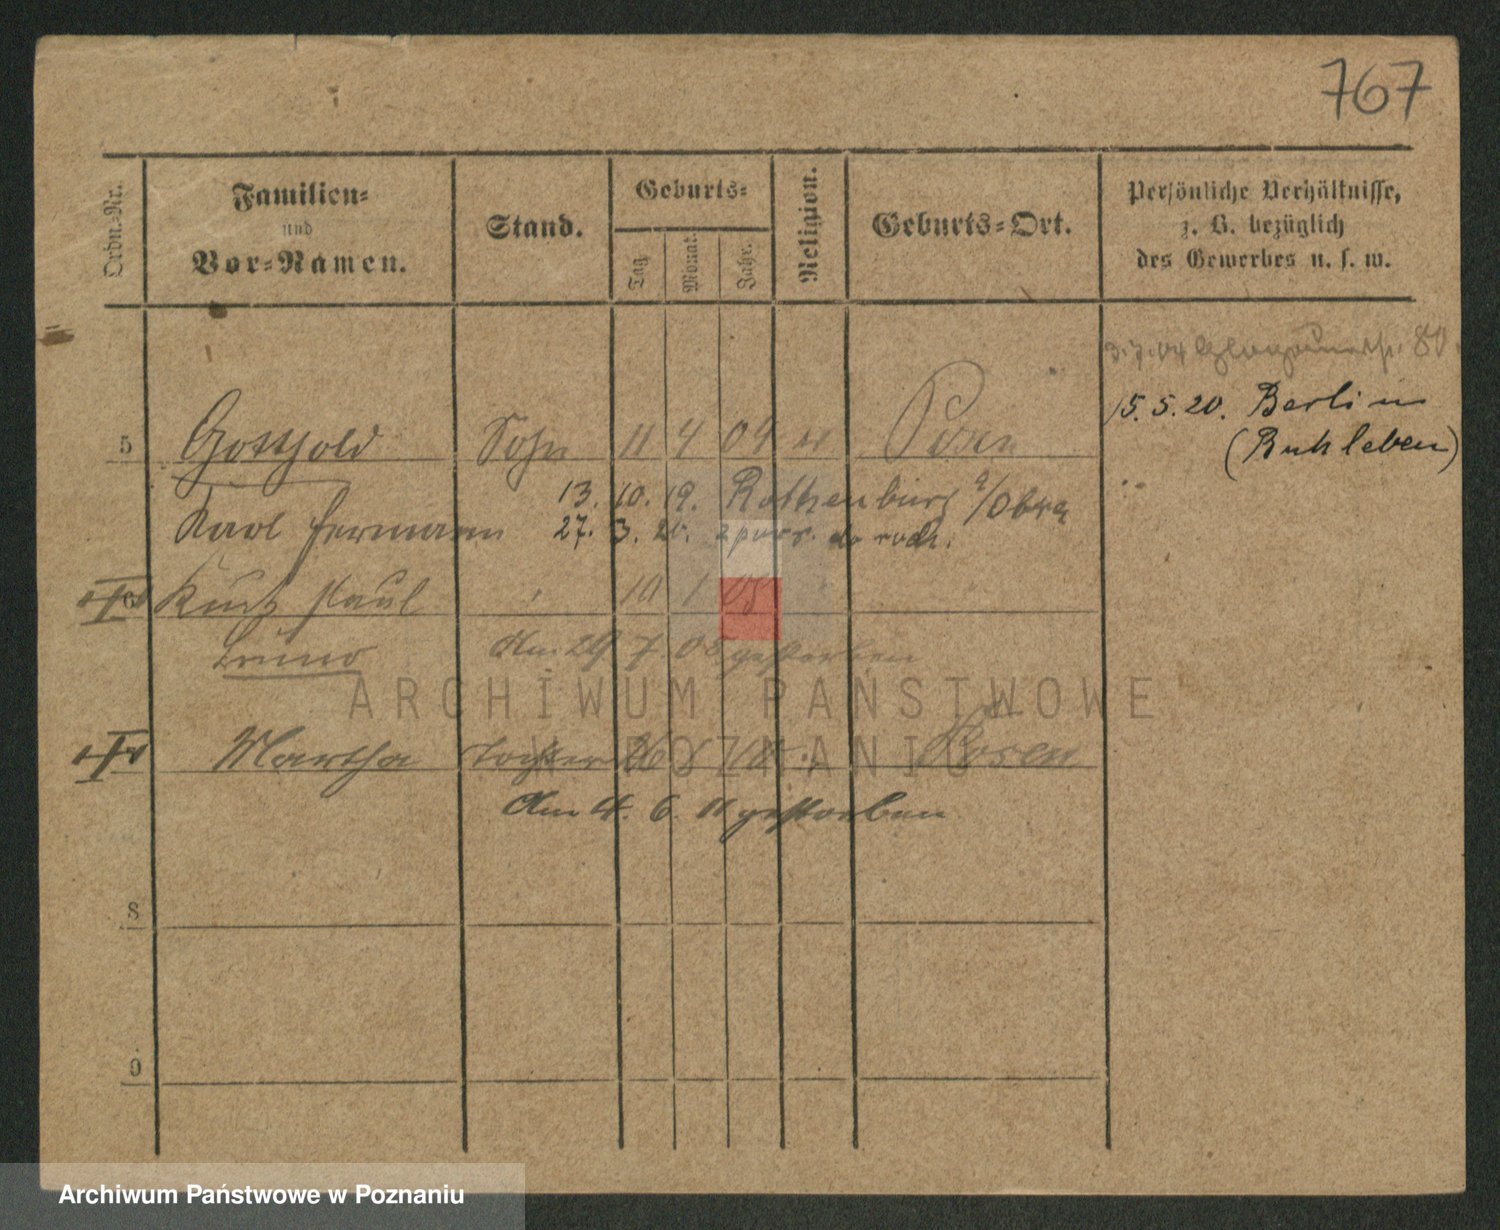 767
Ordn.-Nr.
Familien-
und
Vor-Namen.
Stand.
Geburts-
Tag.
Monat.
Jahr.
Religion.
Geburts-Ort.
Persönliche Verhältnisse,
z. B. bezüglich
des Gewerbes u. s. w.
3.7.04 80
15.5.20. Berlin
(Ruhleben)
5 Gotthold Sohn 11 4 04 Posen
13. 10. 19. Rothenburg a/Obra
Karl Hermann 27. 3. 20. z powr. do rodz.
6 Kurt Paul 10 1 08
Bruno Am 29 7 08 gestorben
Martha Tochter 26 Posen
Am 4. 6. 11 gestorben
8
9
ARCHIWUM PAŃSTWOWE
W POZNANIU
Archiwum Państwowe w Poznaniu